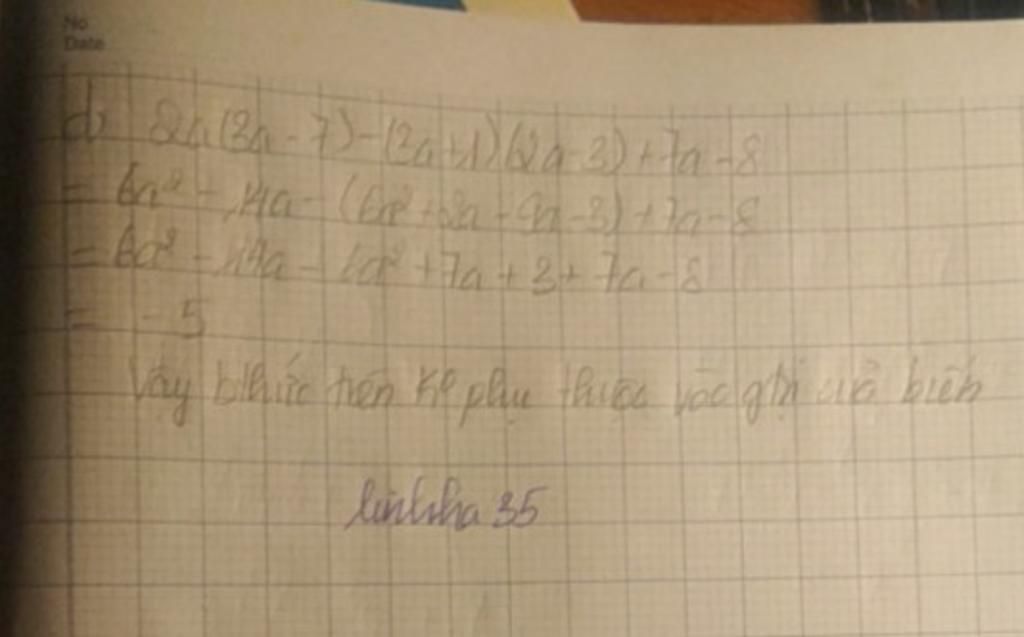 No
Date
d) 2a(3a-7)-(3a+1)(2a-3)+7a-8
= 6a² - 14a - (6a² + 2a - 9a - 3) + 7a - 8
= 6a² - 14a - 6a² + 7a + 3 + 7a - 8
= -5
Vậy bthức trên ko phụ thuộc vào gtrị của biến
linhha 35